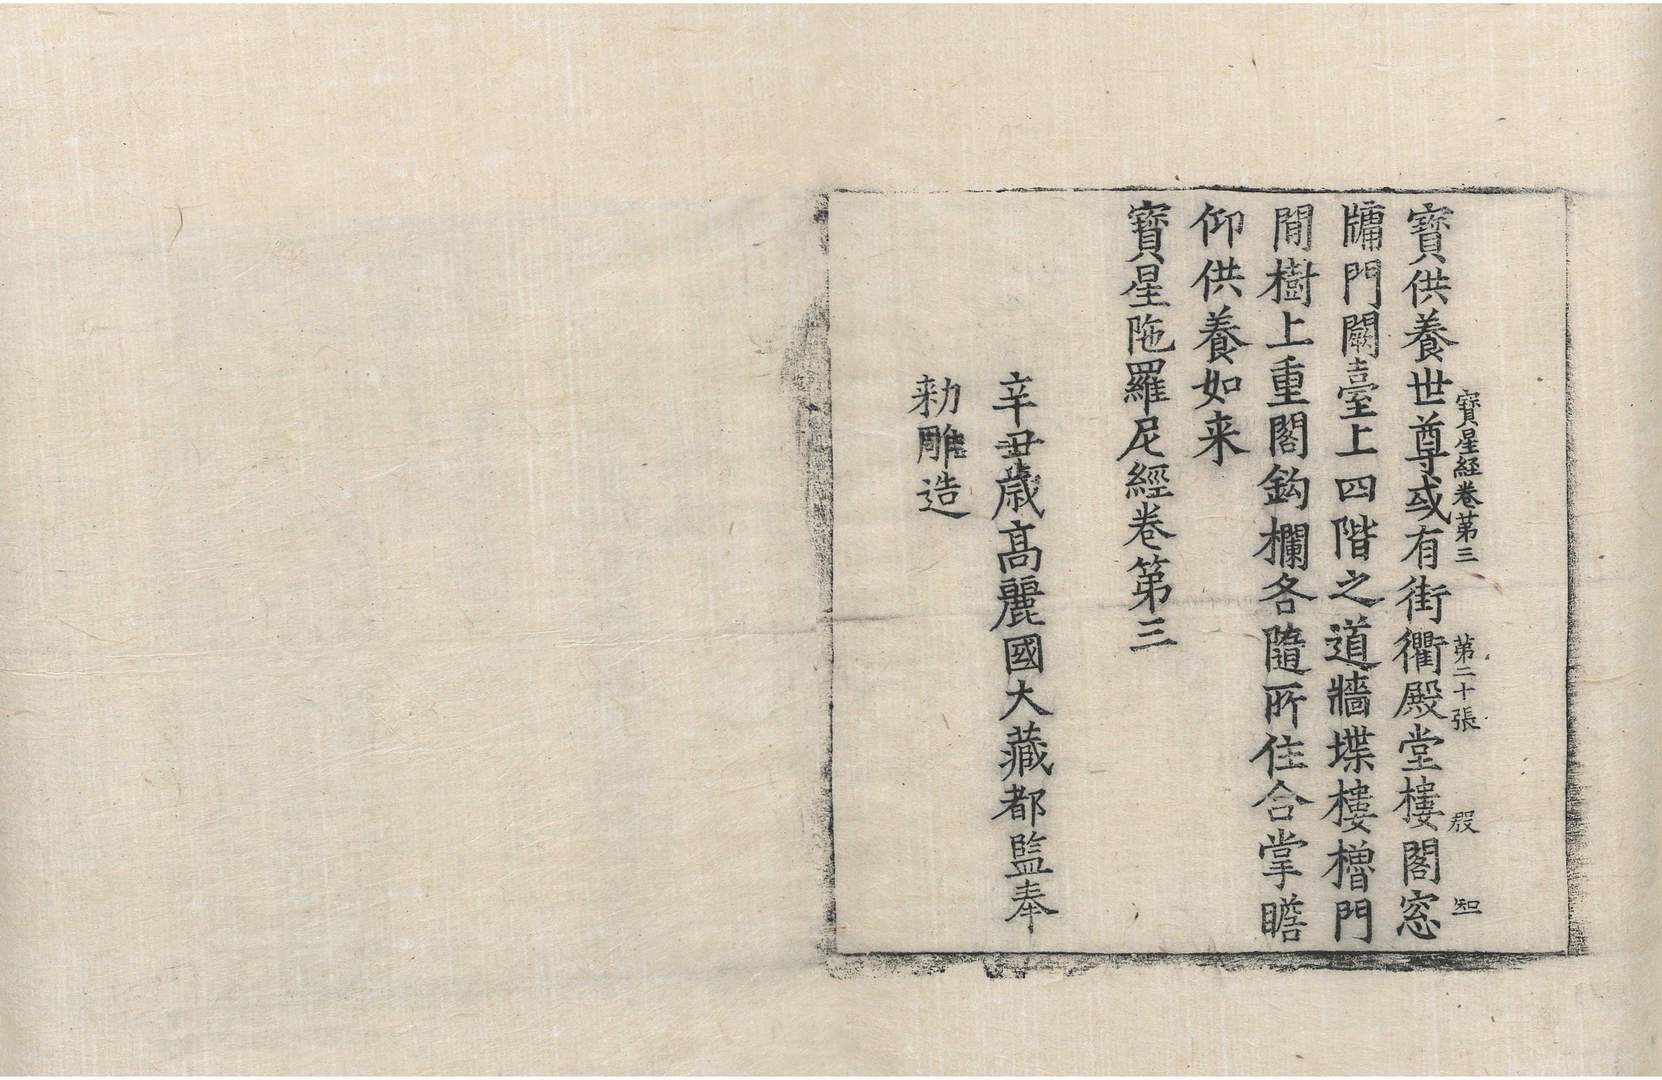 寶星経卷苐三　第二十張　殷　知
寶供養世尊或有街衢殿堂樓閣窓
牗門闕臺上四階之道牆堞樓櫓門
閒樹上重閣鈎欄各隨所住合掌瞻
仰供養如来
寶星陁羅尼經卷第三
辛丑歲高麗國大藏都監奉
勑雕造